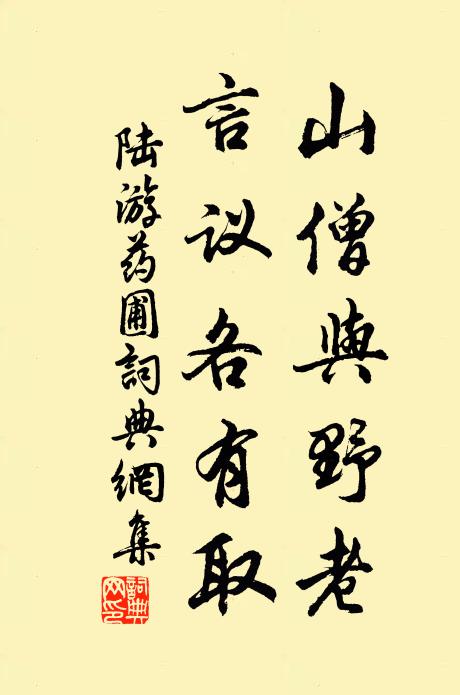 山僧與野老
言议各有取
陆游药圃詞典網集
詞典
网印